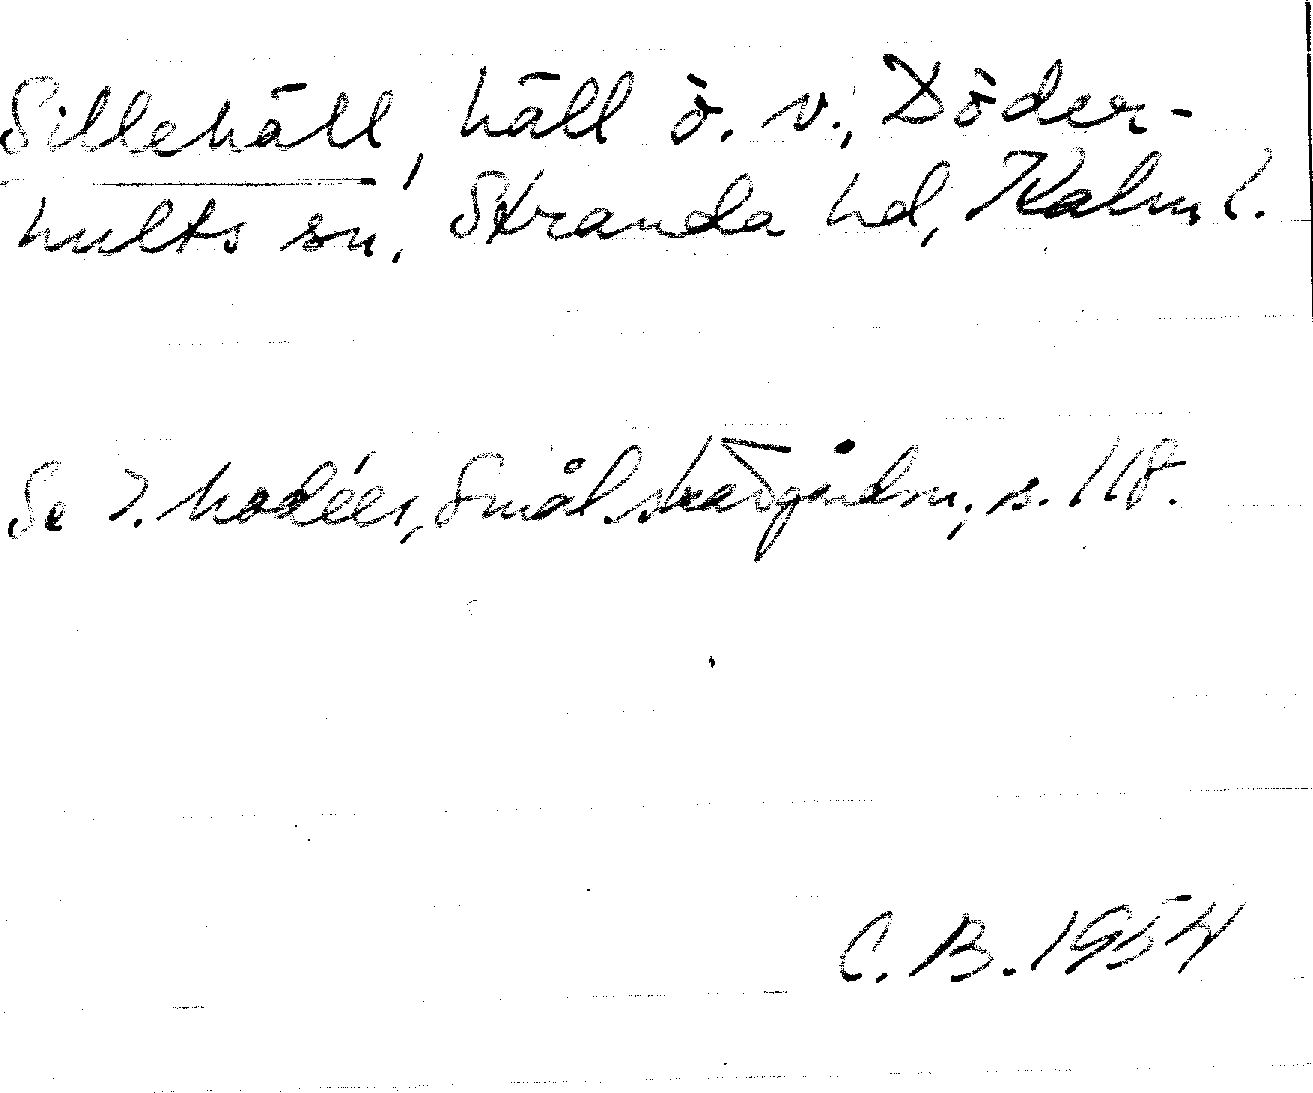 Sillehäll, häll ö. v., Döder-
hults sn, Stranda hd, Kalm l.
Se I. Modéer, Smål skärgårdsn, s. 118.
C. B. 1954